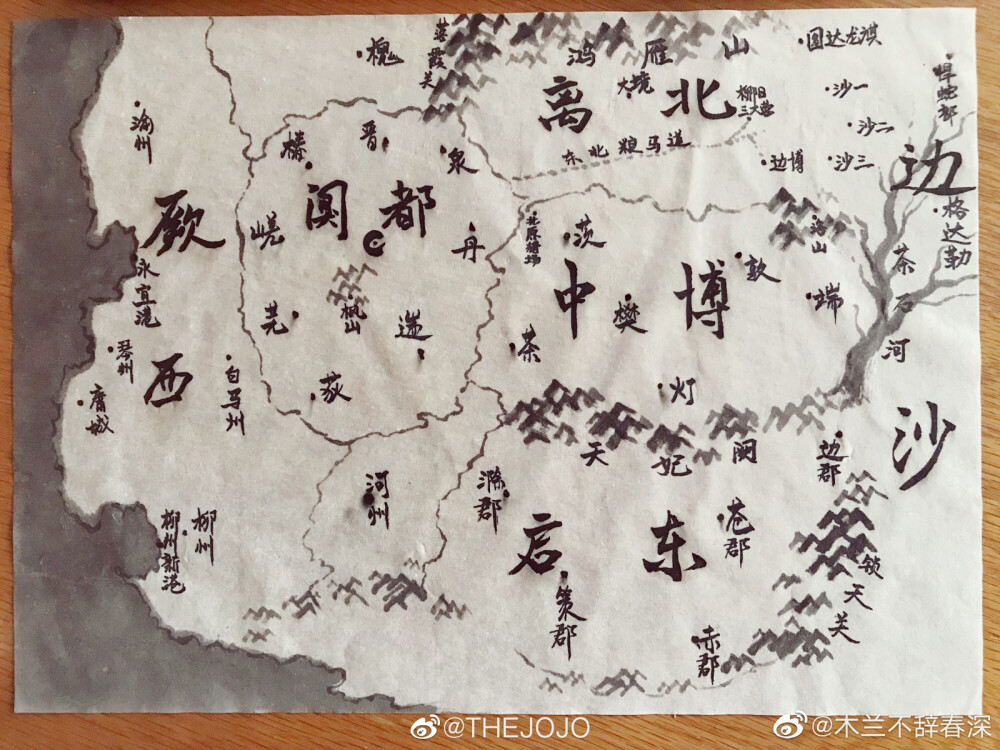 落霞关
槐
鸿雁山
图达龙旗
离北
大境
柳阳三大营
沙一
沙二
沙三
悍蛇部
东北粮马道
边博
边沙
渝州
槐
晋
泉
阒都
厥西
嵯
丹
北原猎场
茨
中博
洛山
敦
格达勒
茶石河
永宜港
枫山
荒
遄
樊
端
茶
琴州
白马州
荻
灯
庸城
天妃阙
边郡
河州
滁郡
苍郡
启东
柳州
柳州新港
锁天关
策郡
赤郡
@THEJOJO
@木兰不辞春深